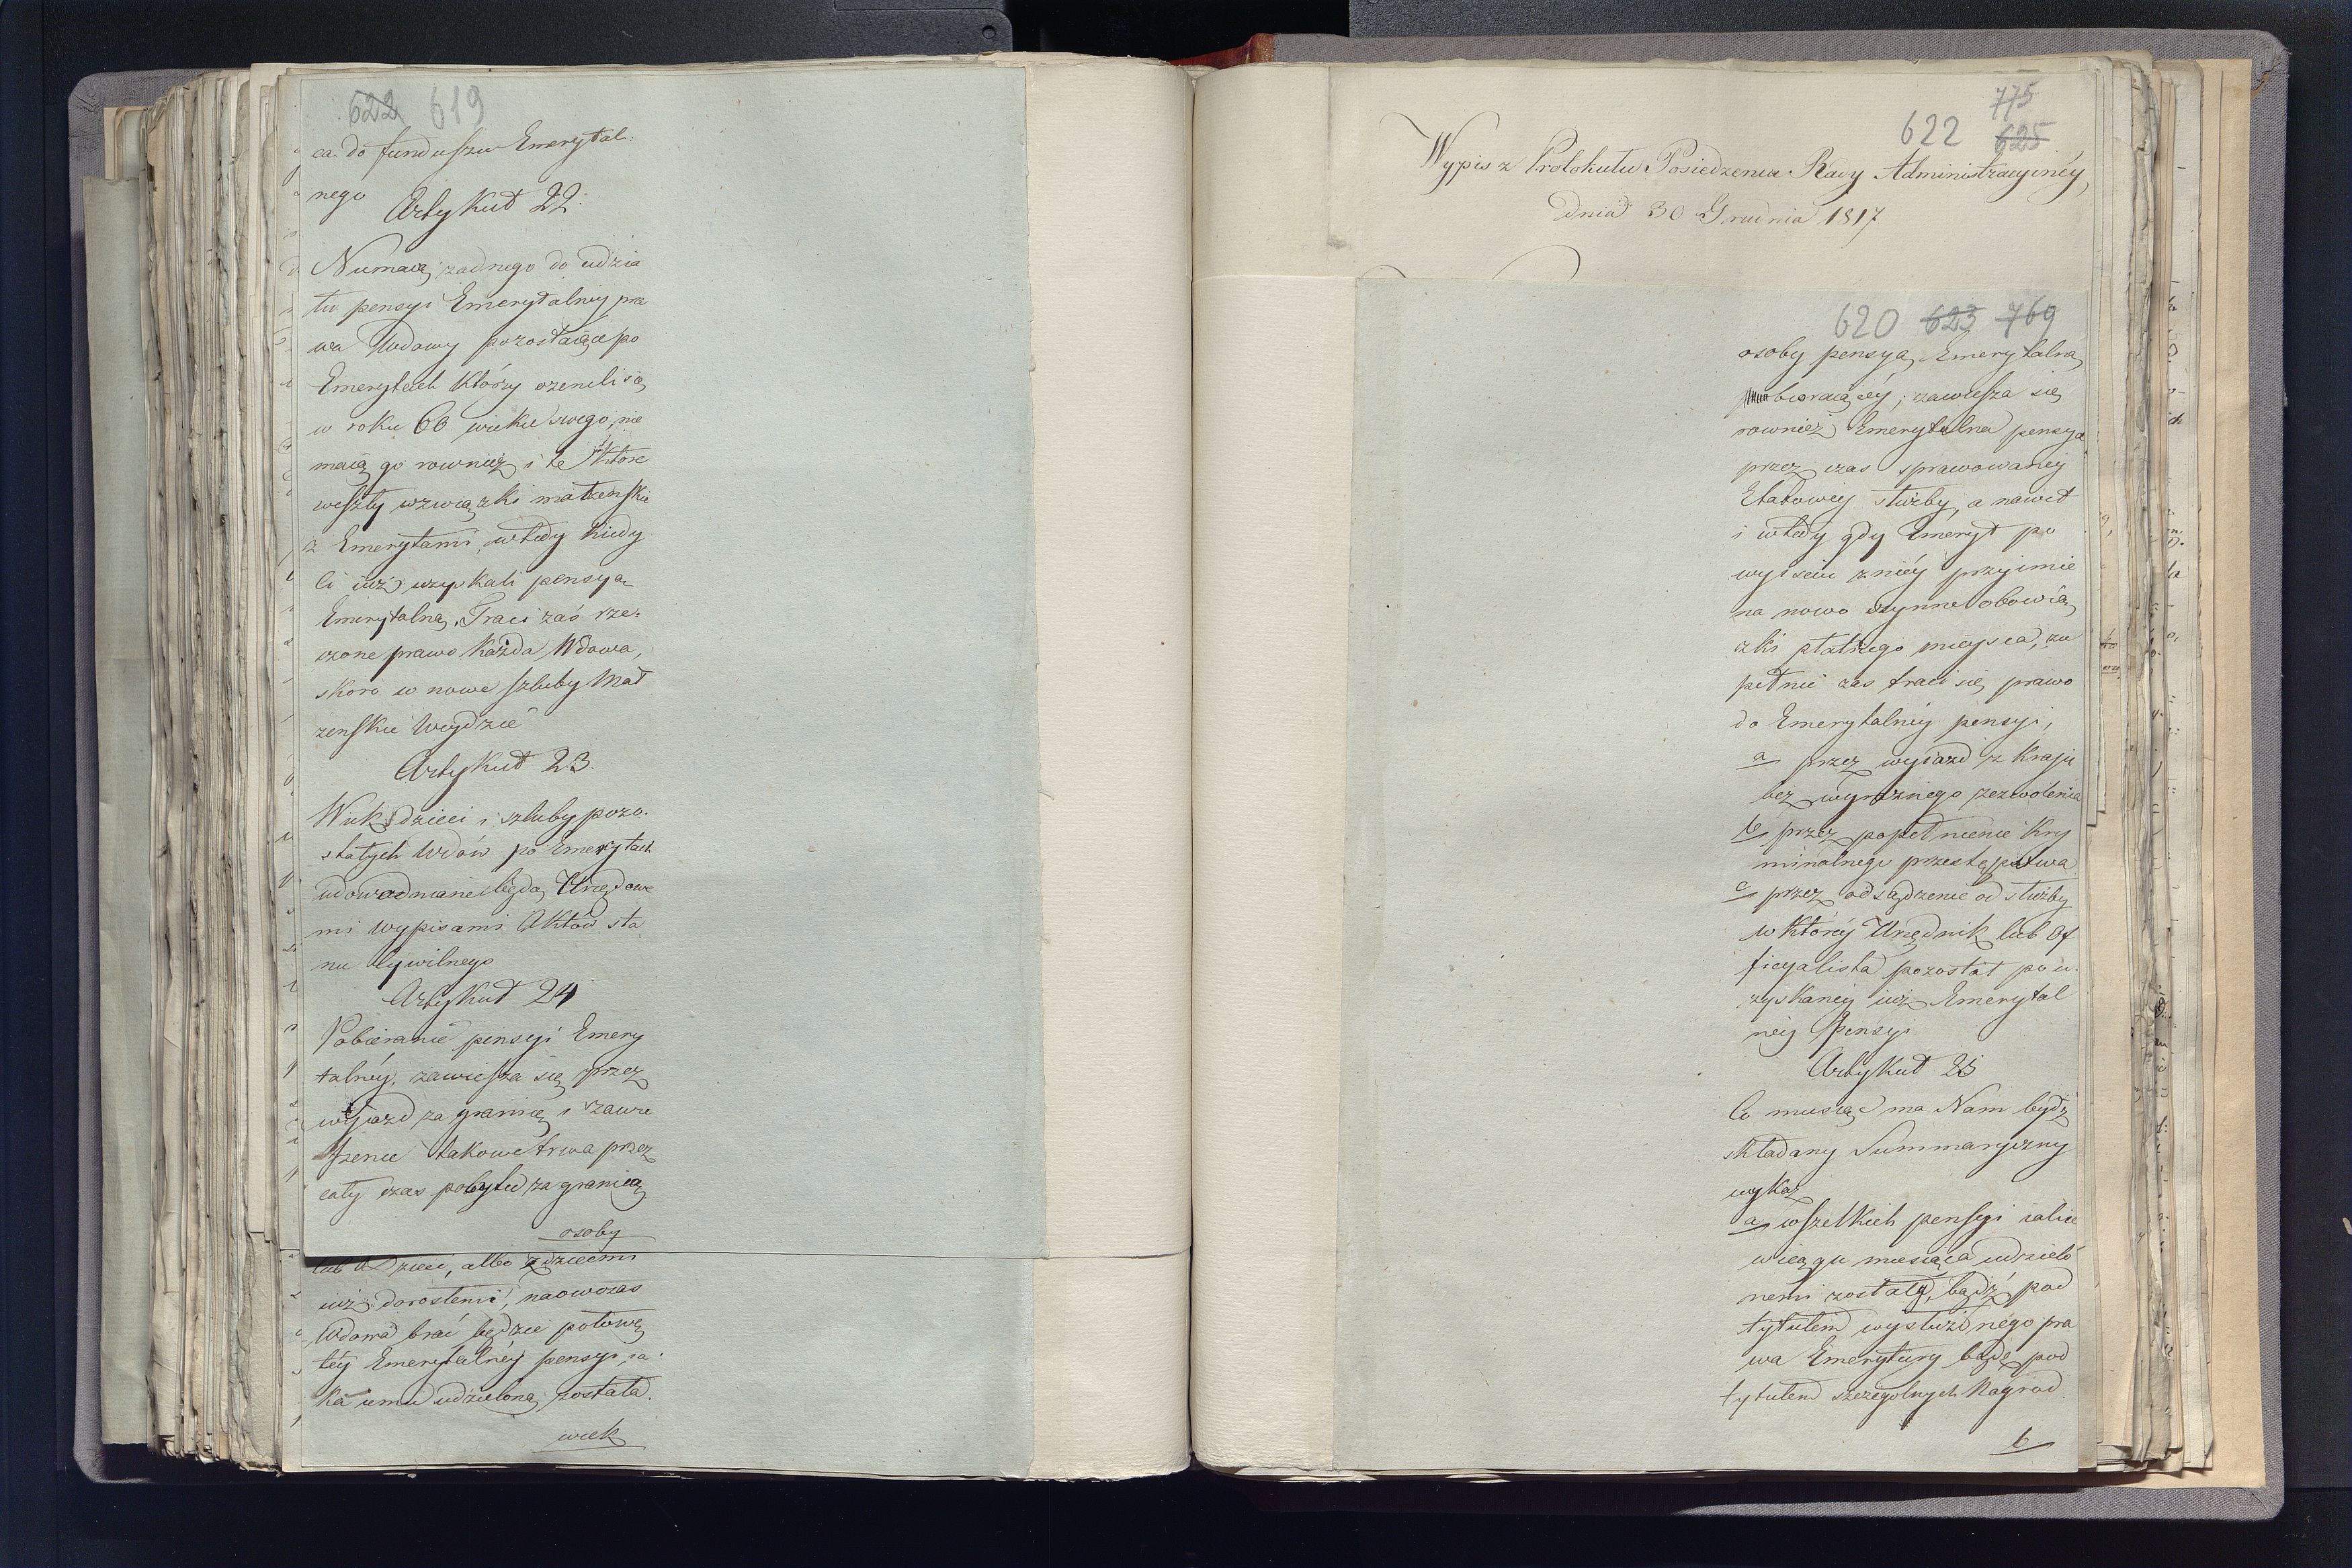 622 619
ca do funduszu Emerytal:
nego
Artykuł 22.
Niemaią żadnego do udzia
łu pensyi Emerytalney pra
wa Wdowy pozostaiące po
Emerytach którzy ożenili się
w roku 60 wieku swego, nie
maią go rownież i te które
weszły wzwiązki małżeńskie
z Emerytami, wtedy kiedy
Ci iuż uzyskali pensyą
Emerytalną. Traci zaś rze-
czone prawo każda Wdowa,
skoro w nowe szluby Mał
żeńskie weydzie
Artykuł 23.
Wiek dzieci i szluby pozo-
stałych Wdów po Emerytach
udowadniane będą Urzędowe
mi wypisami Aktów sta
nu Cywilnego
Artykuł 24
Pobieranie pensyi Emery
talnéy, zawiesza się przez
wyjazd za granicę i zawie
szenie takowe trwa przez
cały czas pobytu za granicą
osoby
lub Dzieci, albo z dziećmi
iuż dorosłemi, naowczas
Wdowa brać będzie połowę
téy Emerytalnéy pensyi, ia-
ka iemu udzieloną została.
wiek
775
622 625
Wypis z Protokułu Posiedzenia Rady Administracyinéy,
Dnia 30 Grudnia 1817
620 623 769
osoby pensyą Emerytalną
bieraiącéy; zawiesza się
rownież Emerytalna pensya
przez czas sprawowanéy
Etatowéy służby, a nawet
i wtedy gdy Emeryt po
wyisciu z niéy przyimie
na nowo czynne obowią
zki płatnego mieysca, zu
pełnie zas traci się prawo
do Emerytalnéy pensyi,
a przez wyiazd z Kraju
bez wyraznego zezwolenia
b przez popełnienie Kry
minalnego przestępstwa
c przez odsądzenie od służby
w któréy Urzędnik lub Of
ficyalista pozostał po u-
zyskanéy iuż Emerytal
néy Pensyi
Artykuł 25
Co miesiąc ma Nam bydź
składany Summaryczny
wykaz
a wszelkich pensyi iakie
wciągu miesiąca udzielo
nemi zostały, bądź pod
tytułem wysłużonego pra
wa Emerytury bądź pod
tytułem szczególnych Nagrod.
b